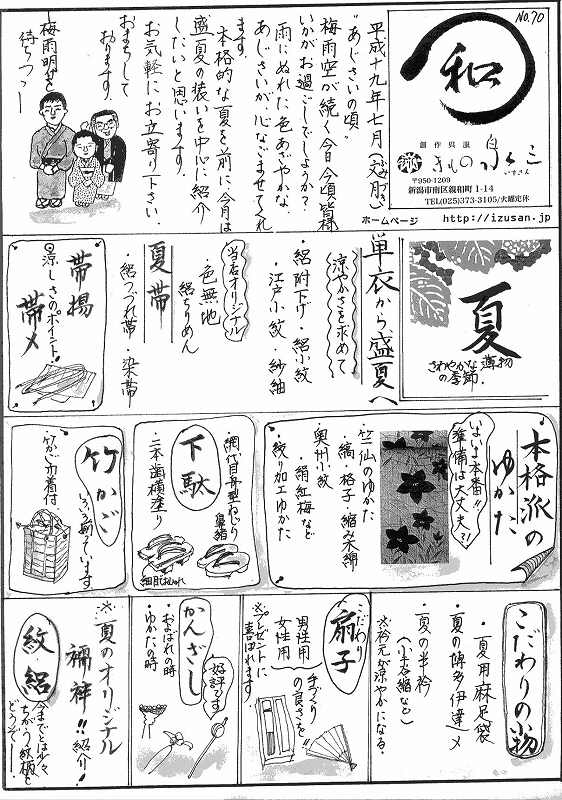 NO.70
和
創作呉服
きもの泉三
いずさん
〒950-1209
新潟市南区親和町1-14
TEL(025)373-3105/火曜定休
ホームページ http://izusan.jp
平成十九年七月(文月)
ふみづき
"あじさいの頃"
梅雨空が続く今日今頃皆様
いかがお過ごしでしょうか?
雨にぬれた色あざやかな
あじさいが心なごませてくれ
ます。
本格的な夏を前に、今月は
盛夏の装いを中心に紹介
したいと思います。
お気軽にお立寄り下さい。
おまちして
おります。
―梅雨明けを
待ちつつ―
夏
さわやかな薄物
の季節.
単衣から盛夏へ
涼やかさを求めて
・絽附下げ・絽小紋
・江戸小紋・紗紬
当店オリジナル
・色無地
絽ちりめん
夏帯
・絽つづれ帯・染帯
帯揚
帯〆
涼しさのポイント!
本格派の
ゆかた
いよいよ本番!!
準備は大丈夫?!
竺仙のゆかた
・縞・格子・縮み木綿
奥州小紋
・絹紅梅など
・絞り加工ゆかた
下駄
・網代目舟型ねじり
鼻緒
・二本歯横塗り
竹かご
いろいろ集めています
・竹かご巾着付
こだわりの物
・夏用麻足袋
・夏の博多伊達〆
・夏の半衿
(小千谷縮など)
※衿元が涼やかになる.
こだわり
扇子
男性用
女性用
手づくり
の良さを!!
※プレゼントに
喜ばれます
かんざし
好評です
・およばれの時
・ゆかたの時
※夏のオリジナル
襦袢!!紹介!
紋絽
今までとは少々
ちがう紋柄を
どうぞー!